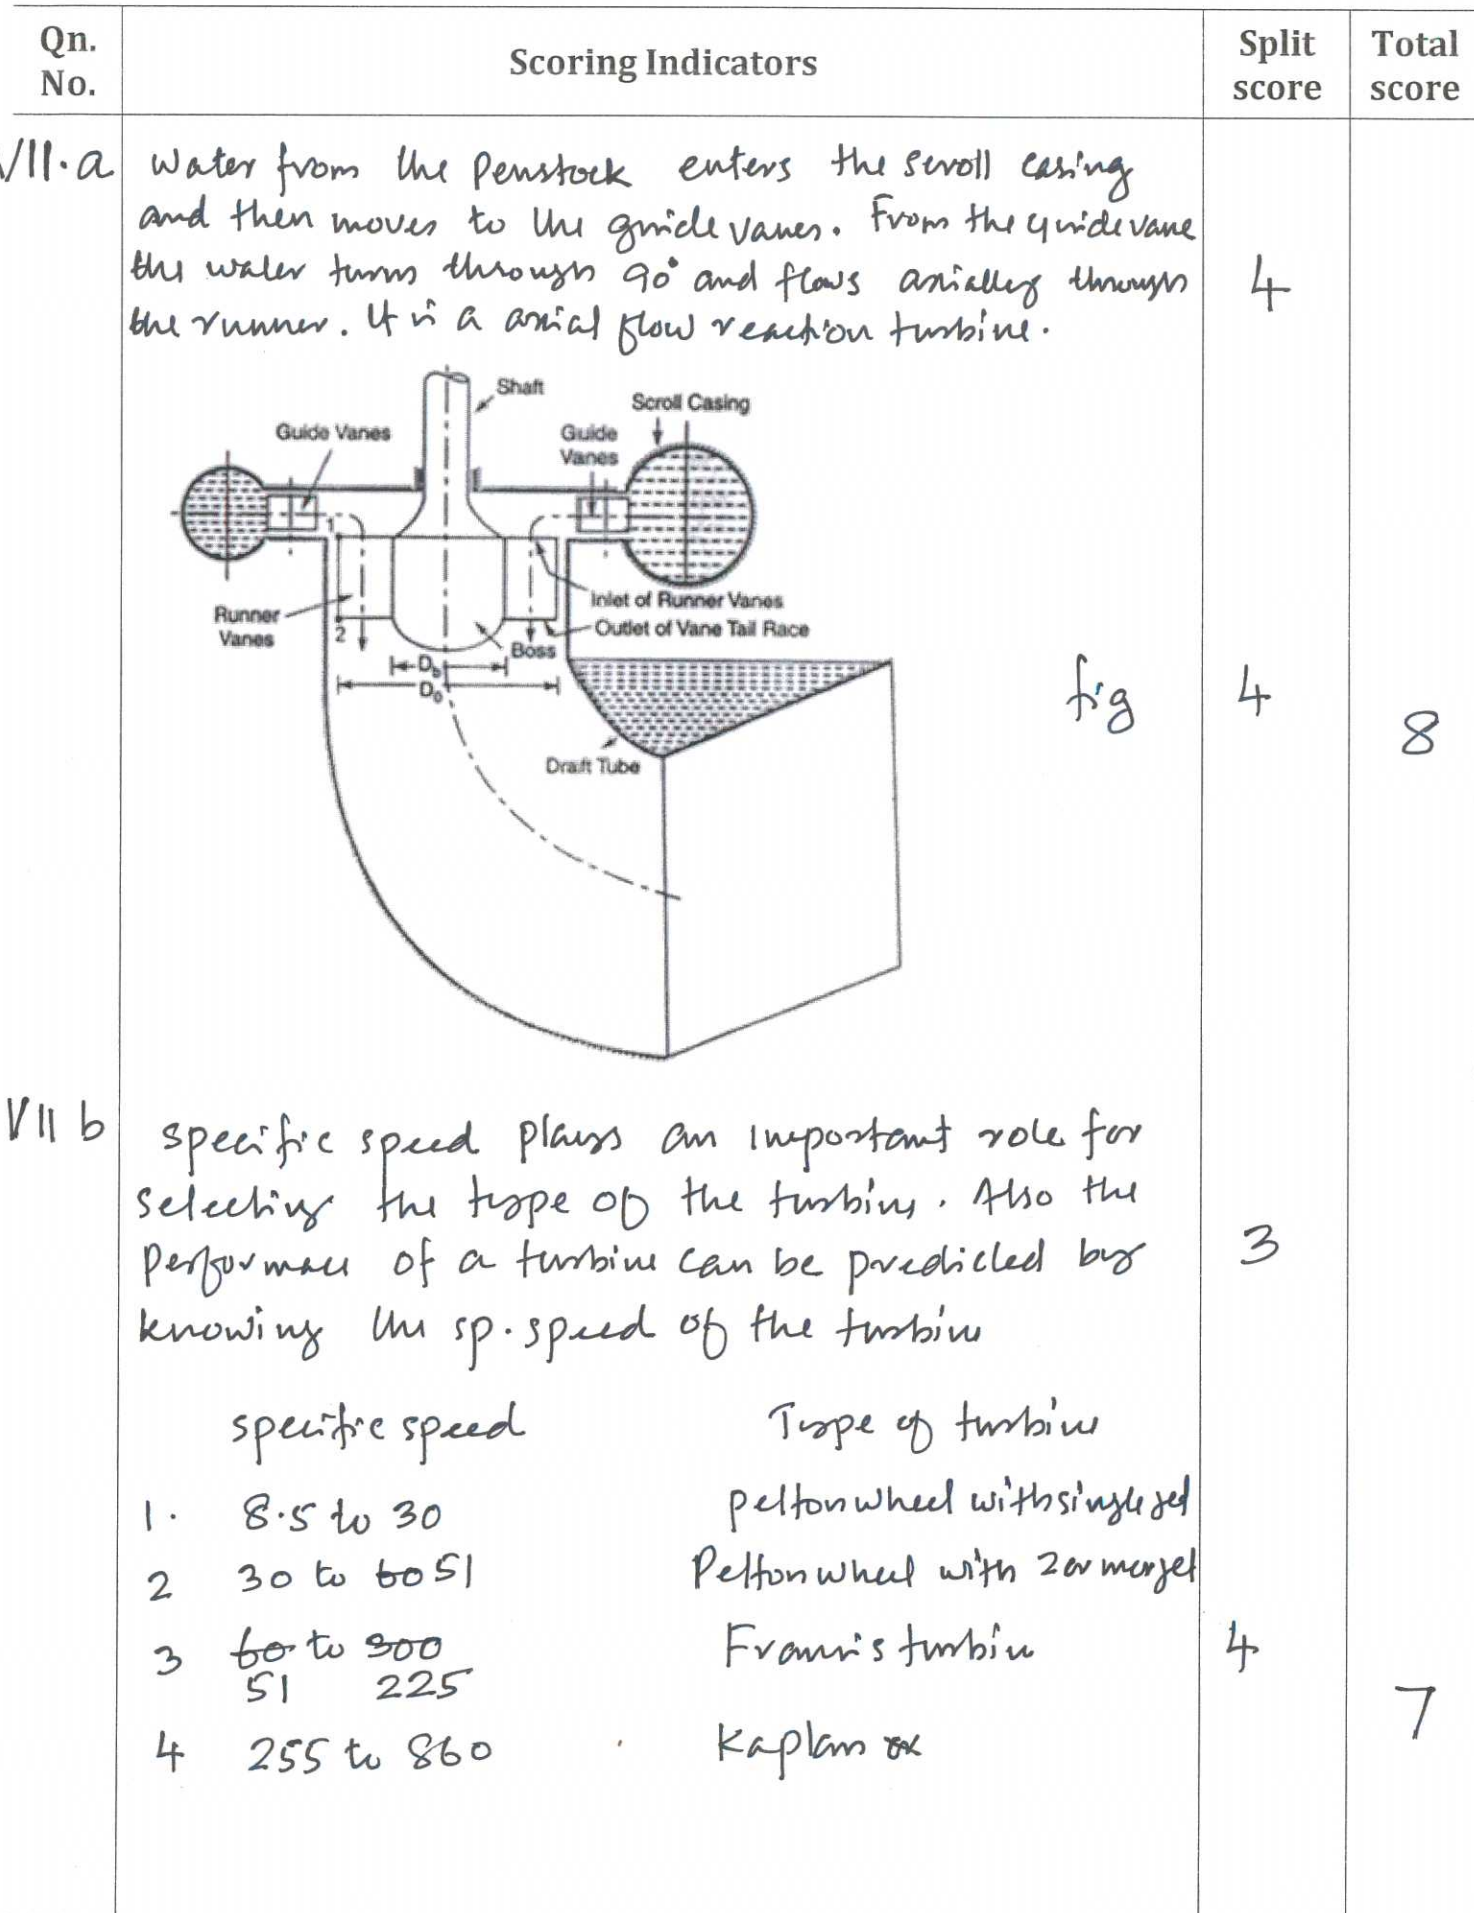 Qn. No.
Scoring Indicators
Split score
Total score
VII.a
Water from the Penstock enters the scroll casing
and then moves to the guide vanes. From the guide vane
the water turns through 90° and flows axially through
the runner. It is a axial flow reaction turbine.
4
Shaft
Scroll Casing
Guide Vanes
Guide
Vanes
1
Inlet of Runner Vanes
Runner
Vanes
2
Outlet of Vane Tail Race
Boss
Db
Do
Draft Tube
fig
4
8
VII b
specific speed plays an important role for
selecting the type of the turbine. Also the
Performance of a turbine can be predicted by
knowing the sp. speed of the turbine
3
specific speed Type of turbine
1. 8.5 to 30 pelton wheel with single jet
2 30 to 60 51 Pelton wheel with 2 or mor jet
3 60 to 300 Francis turbine
51 225
4
7
4 255 to 860 Kaplan or